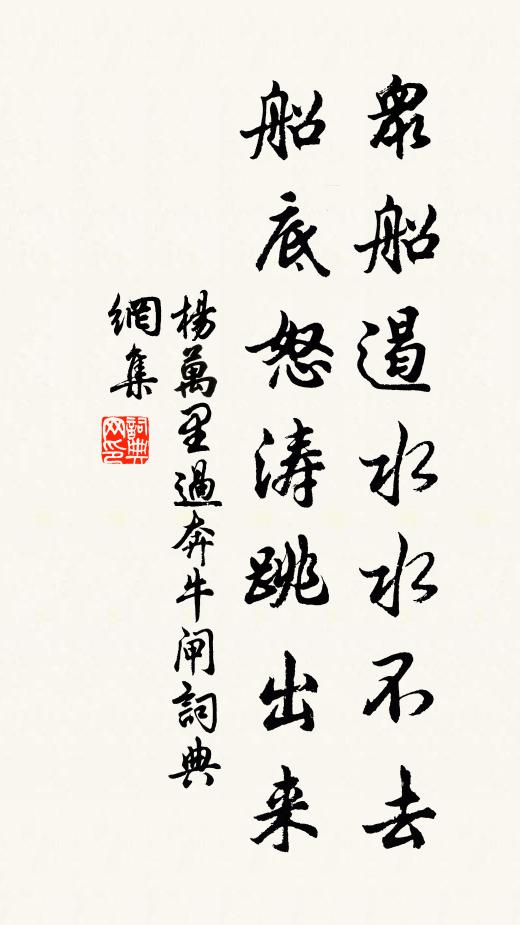 衆船遏水水不去
船底怒涛跳出来
楊萬里過奔牛闸詞典
網集
詞典网印